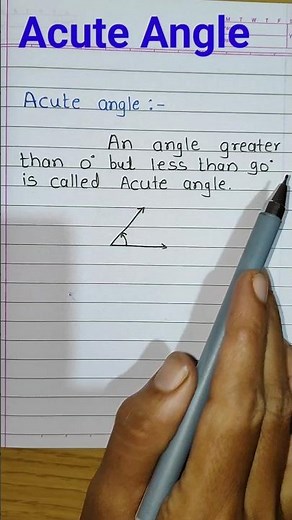 Acute Angle
M T W T F S
Acute angle :-
An angle greater
than 0° but less than 90°
is called Acute angle.